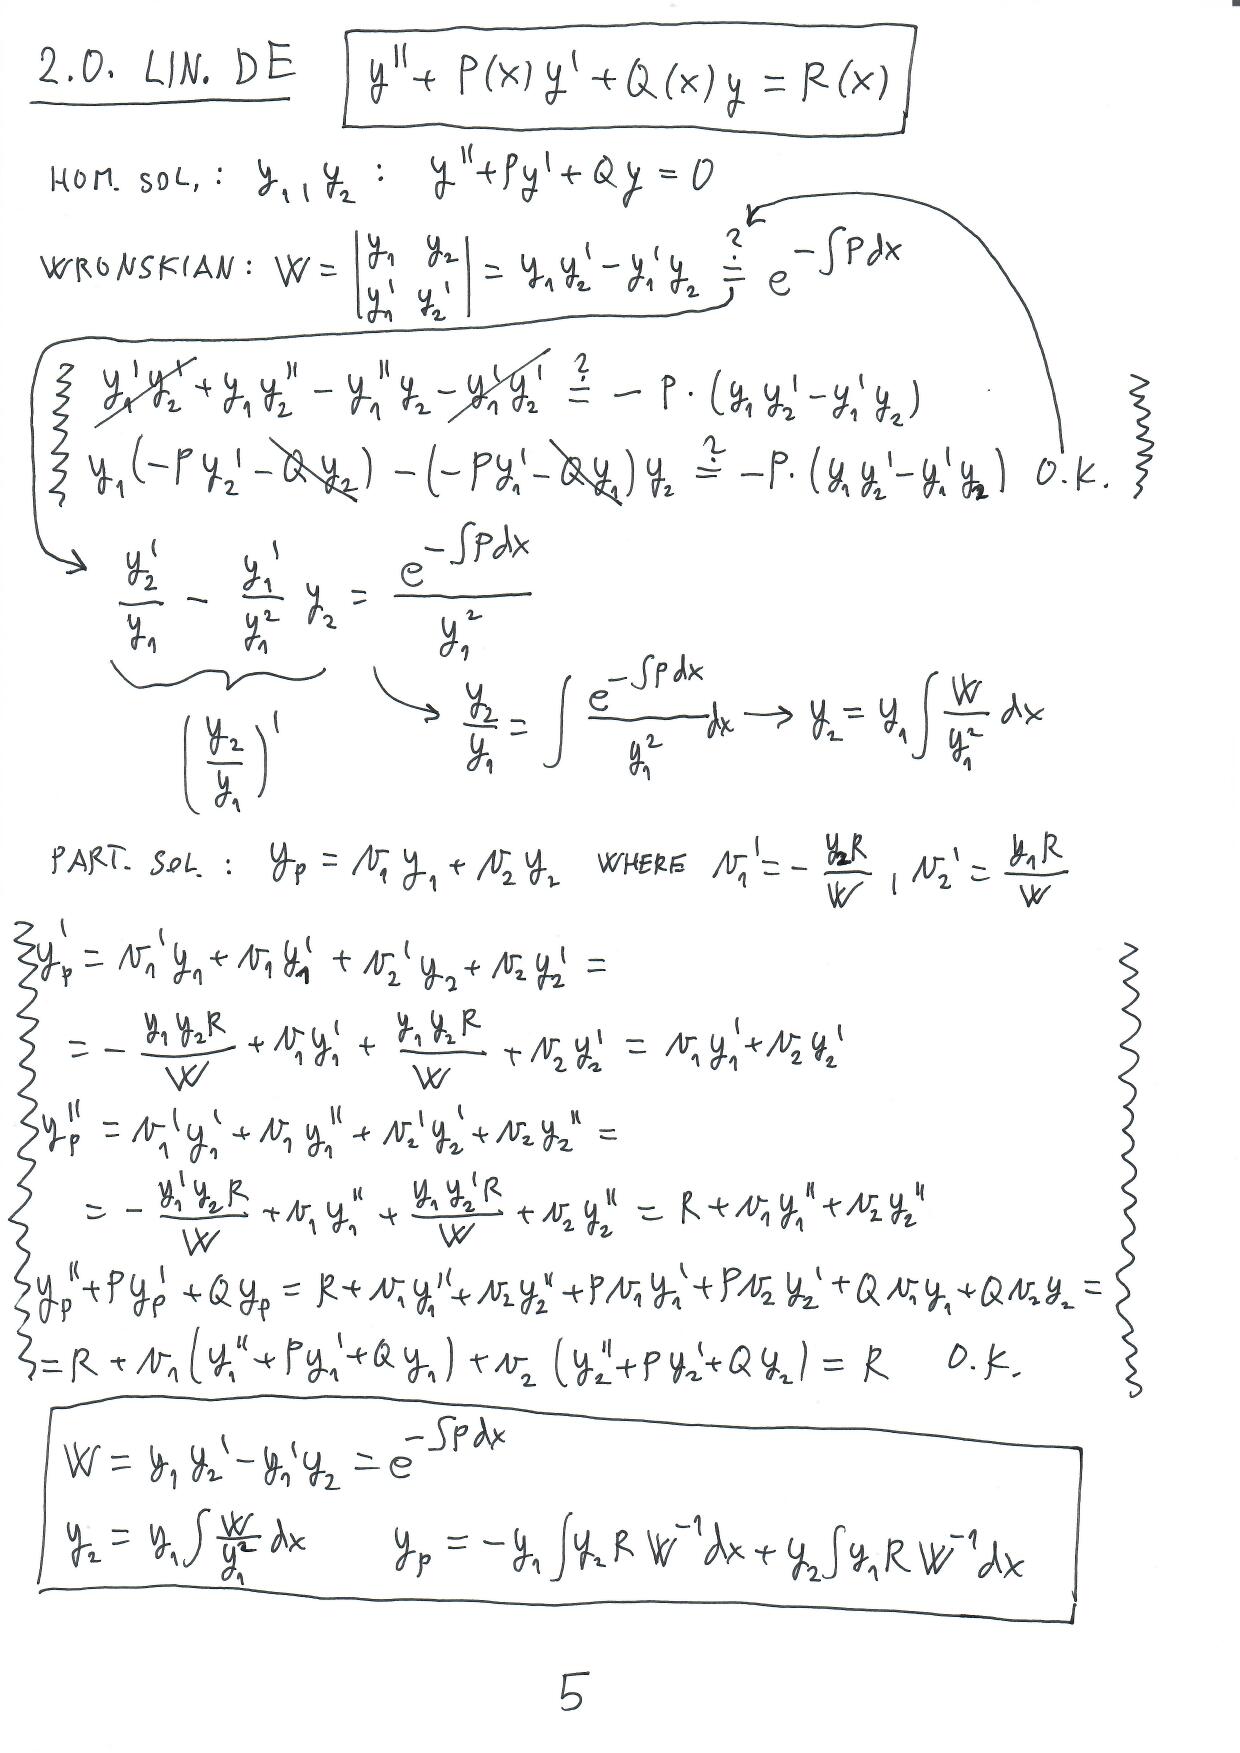 2.O. LIN. DE y'' + P(x) y' + Q(x) y = R(x)
HOM. SOL.: y₁, y₂ : y'' + Py' + Qy = 0
WRONSKIAN: W = |y₁ y₂; y₁' y₂'| = y₁y₂' - y₁'y₂ ≟ e^(-∫Pdx)
y₁'y₂' + y₁y₂'' - y₁''y₂ - y₁'y₂' ≟ - P · (y₁y₂' - y₁'y₂)
y₁(-Py₂' - Qy₂) - (-Py₁' - Qy₁)y₂ ≟ -P·(y₁y₂' - y₁'y₂) O.K.
y₂'/y₁ - y₁'/y₁² y₂ = e^(-∫Pdx)/y₁²
(y₂/y₁)' → y₂/y₁ = ∫ e^(-∫Pdx)/y₁² dx → y₂ = y₁ ∫ W/y₁² dx
PART. SOL.: yₚ = v₁y₁ + v₂y₂ WHERE v₁' = - y₂R/W, v₂' = y₁R/W
yₚ' = v₁'y₁ + v₁y₁' + v₂'y₂ + v₂y₂' =
= - y₁y₂R/W + v₁y₁' + y₁y₂R/W + v₂y₂' = v₁y₁' + v₂y₂'
yₚ'' = v₁'y₁' + v₁y₁'' + v₂'y₂' + v₂y₂'' =
= - y₁'y₂R/W + v₁y₁'' + y₁y₂'R/W + v₂y₂'' = R + v₁y₁'' + v₂y₂''
yₚ'' + Pyₚ' + Qyₚ = R + v₁y₁'' + v₂y₂'' + Pv₁y₁' + Pv₂y₂' + Qv₁y₁ + Qv₂y₂ =
= R + v₁(y₁'' + Py₁' + Qy₁) + v₂(y₂'' + Py₂' + Qy₂) = R O.K.
W = y₁y₂' - y₁'y₂ = e^(-∫Pdx)
y₂ = y₁ ∫ W/y₁² dx yₚ = -y₁ ∫y₂RW⁻¹dx + y₂ ∫y₁RW⁻¹dx
5